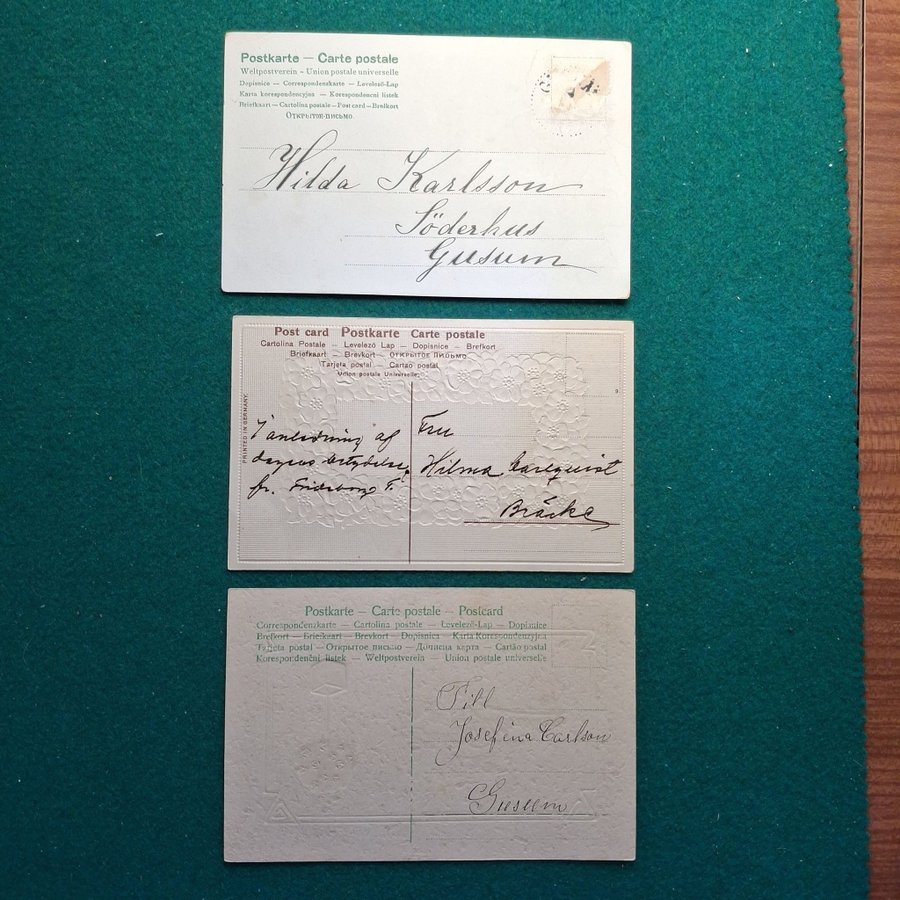 Postkarte — Carte postale
Weltpostverein - Union postale universelle
Dopisnice — Correspondenzkarte — Levelező-Lap
Karta korespondencyjna — Korespondenční lístek
Briefkaart — Cartolina postale — Post card — Brefkort
Открытое письмо.
Hilda Karlsson
Söderhus
Gusum
Post card Postkarte Carte postale
Cartolina Postale — Levelező Lap — Dopisnice — Brefkort
Briefkaart — Brevkort — Открытое письмо
Tarjeta postal — Cartão postal
Union postale Universelle.
9.
PRINTED IN GERMANY.
I anledning af
dagens betydelse
fr. F.
Fru
Hilma Carlquist
Bräcke
Postkarte — Carte postale — Postcard
Correspondenzkarte — Cartolina postale — Levelező-Lap — Dopisnice
Brefkort — Briefkaart — Brevkort — Dopisnica Karta Korespondenzyjna
Tarjeta postal — Открытое письмо — Дописна карта — Cartão postal
Korespondenční lístek — Weltpostverein — Union postale universelle
Till
Josefina Carlson
Gusum